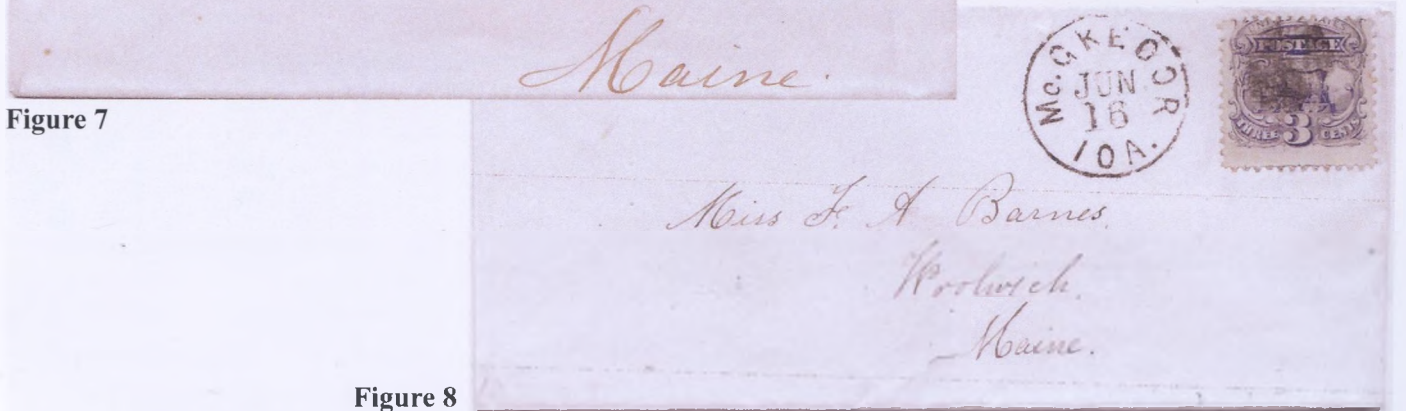 Maine.
Figure 7
Mc.GREGOR
JUN
16
IOA.
POSTAGE
THREE 3 CENTS
Miss F. A Barnes.
Woolwich.
Maine.
Figure 8